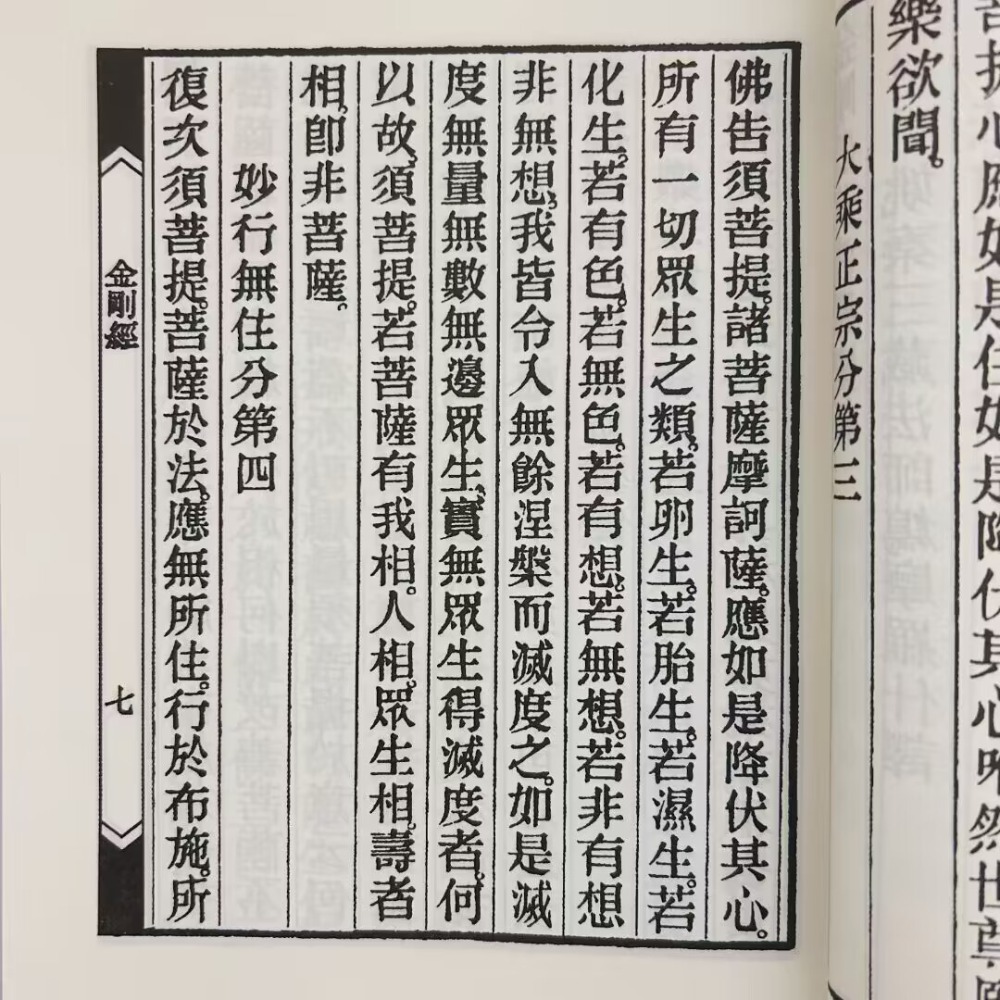 提心應如是住如是降伏其心唯然世尊
樂欲聞。
大乘正宗分第三
佛告須菩提。諸菩薩摩訶薩。應如是降伏其心。
所有一切眾生之類。若卵生。若胎生。若濕生。若
化生。若有色。若無色。若有想。若無想。若非有想
非無想。我皆令入無餘涅槃而滅度之。如是滅
度無量無數無邊眾生。實無眾生得滅度者。何
以故。須菩提。若菩薩有我相。人相。眾生相。壽者
相。即非菩薩。
妙行無住分第四
復次須菩提。菩薩於法。應無所住。行於布施。所
金剛經
七